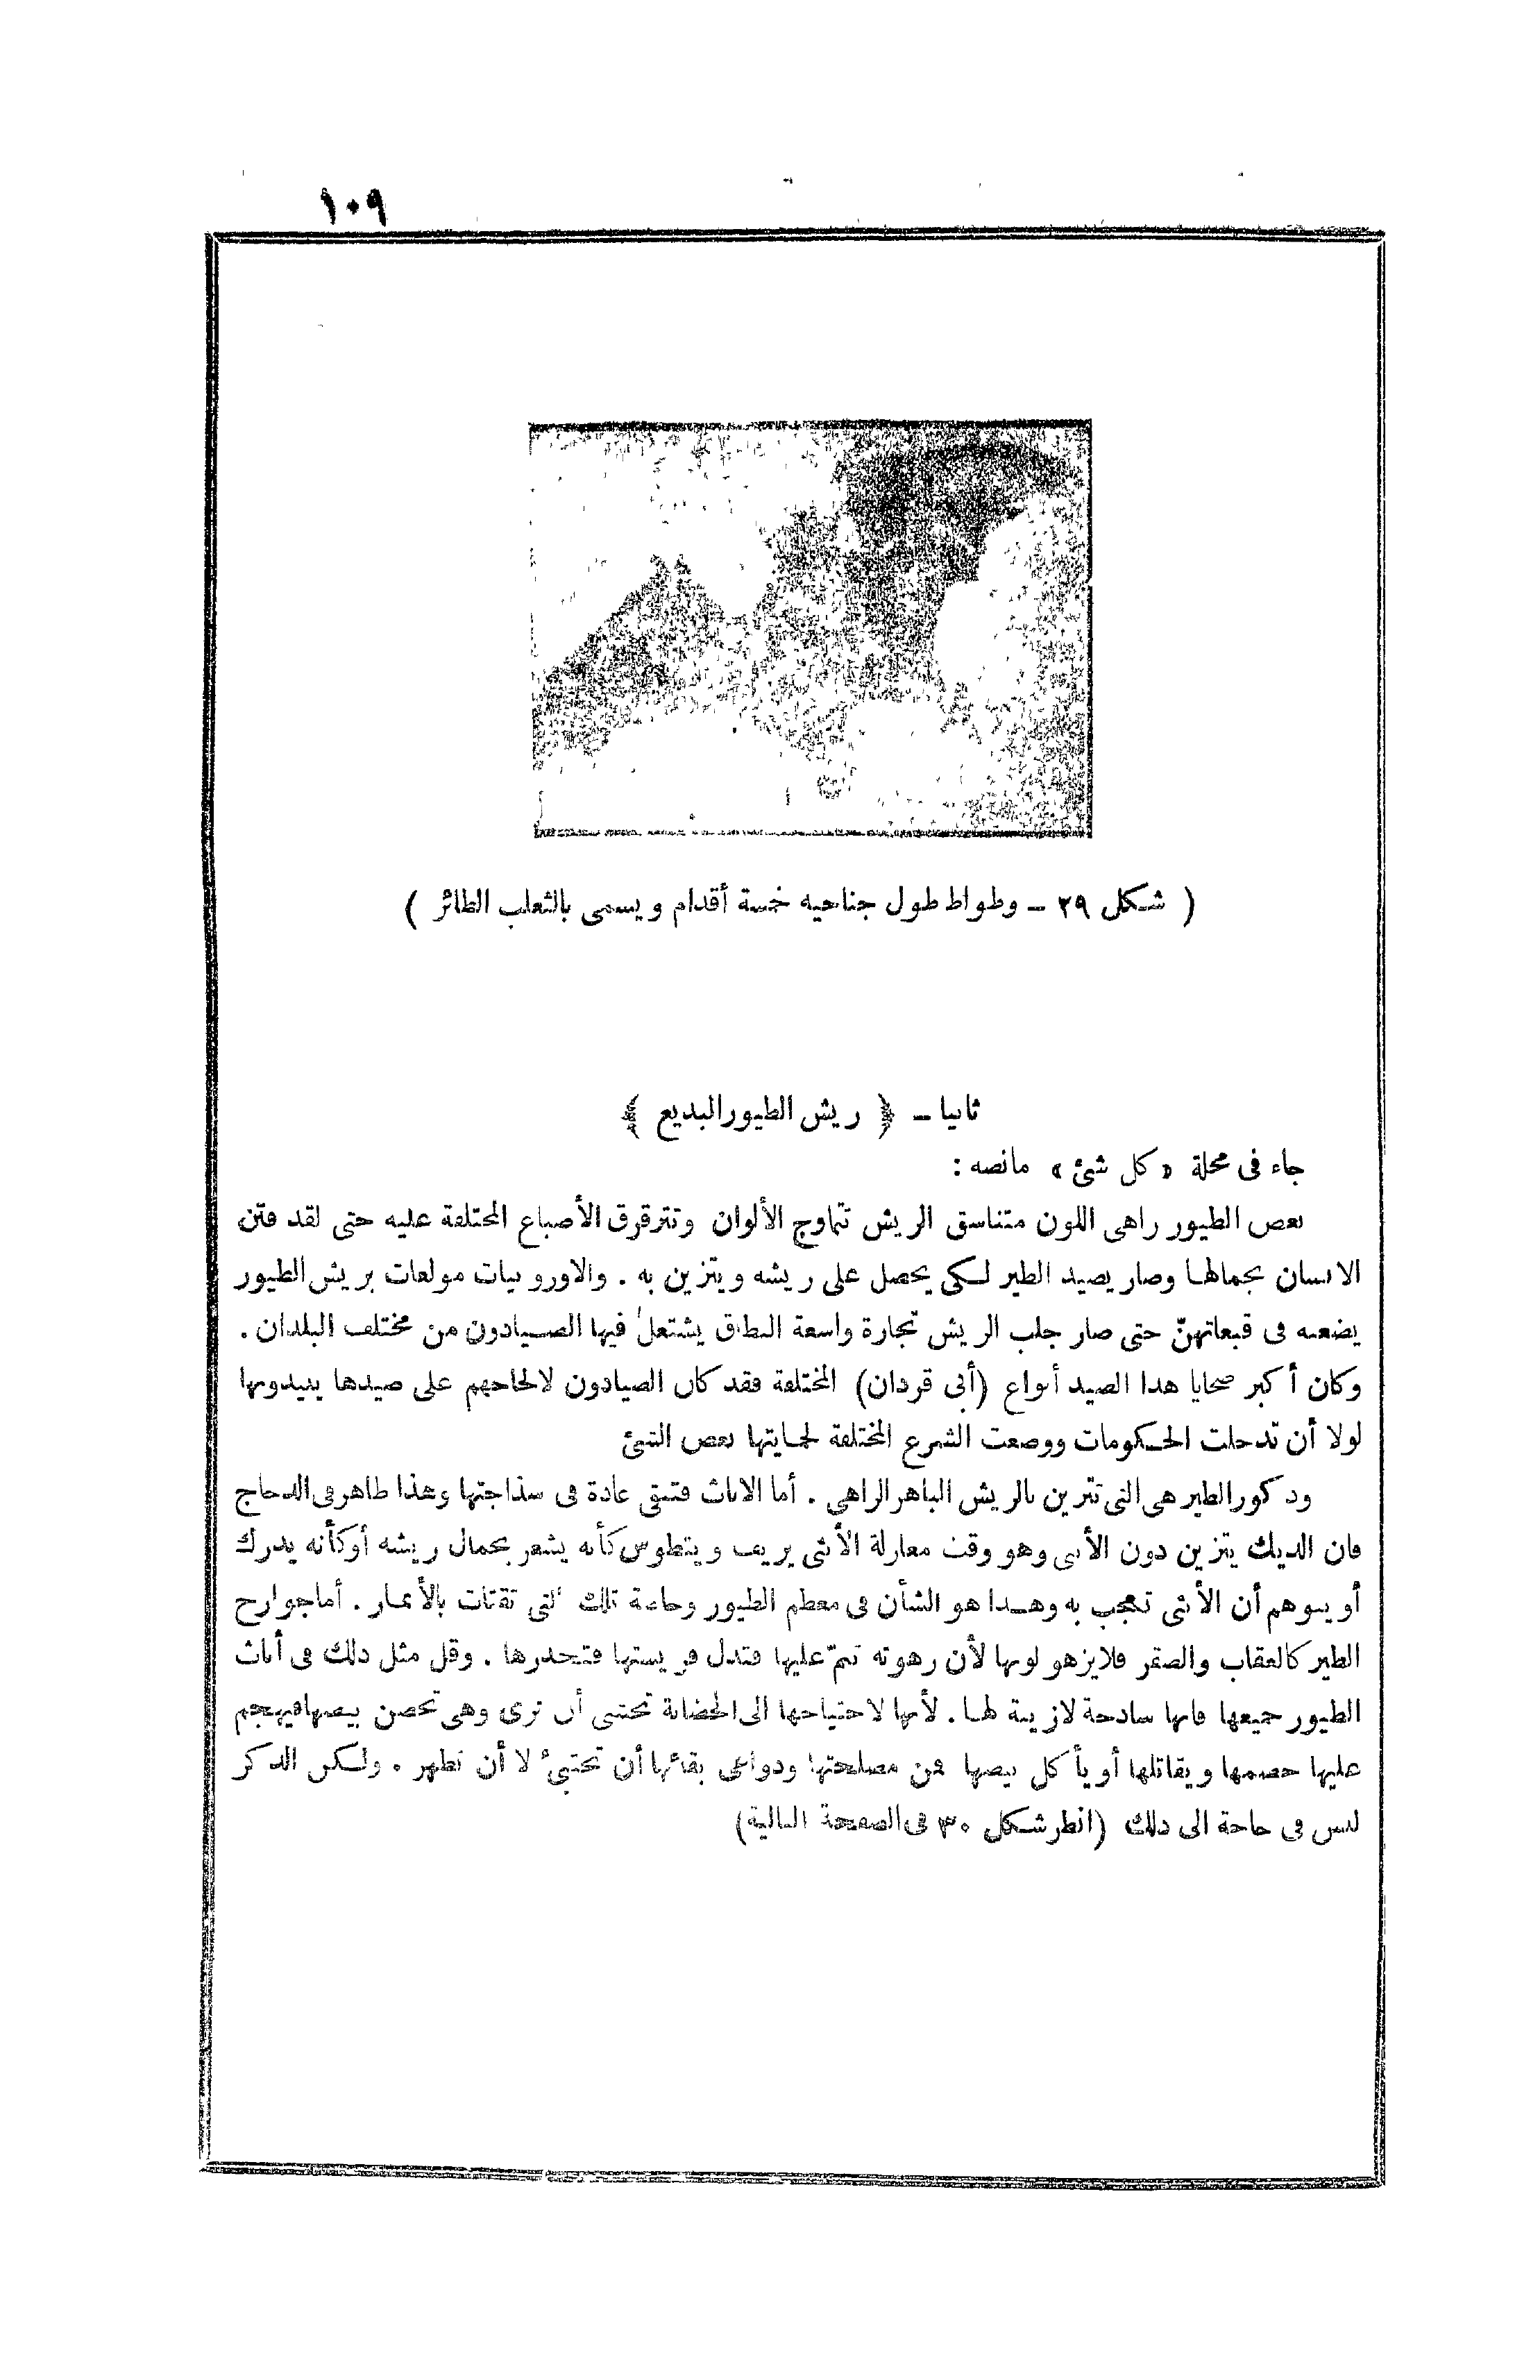 ١٠٩
( شكل ٢٩ – وطواط طول جناحيه خمسة أقدام ويسمى بالثعلب الطائر )
ثانيا – ﴿ ريش الطيور البديع ﴾
جاء فى مجلة «كل شئ» مانصه :
بعض الطيور زاهى اللون متناسق الريش تتماوج الألوان وتترقرق الأصباغ المختلفة عليه حتى لقد فتن
الانسان بجمالها وصار يصيد الطير لكى يحصل على ريشه ويتزين به . والاوروبيات مولعات بريش الطيور
يضعنه فى قبعاتهنّ حتى صار جلب الريش تجارة واسعة النطاق يشتغل فيها الصيادون من مختلف البلدان .
وكان أكبر ضحايا هذا الصيد أنواع (أبى قردان) المختلفة فقد كان الصيادون لالحاحهم على صيدها يبيدونها
لولا أن تدخلت الحكومات ووضعت الشرع المختلفة لحمايتها بعض الشئ
وذكور الطير هى التى تتزين بالريش الباهر الزاهى . أما الاناث فتبقى عادة فى سذاجتها وهذا ظاهر فى الدجاج
فان الديك يتزين دون الأنثى وهو وقت مغازلة الأنثى يزيف ويتطوس كأنه يشعر بجمال ريشه أوكأنه يدرك
أو يتوهم أن الأنثى تعجب به وهذا هو الشأن فى معظم الطيور وخاصة تلك التى تقتات بالأثمار . أما جوارح
الطير كالعقاب والصقر فلايزهو لونها لأن زهوته تنمّ عليها فتدل فريستها فتحذرها . وقل مثل ذلك فى أناث
الطيور جميعها فانها ساذجة لازينة لها . لأنها لاحتياجها الى الحضانة تخشى أن ترى وهى تحضن بيضها فيهجم
عليها خصمها ويقاتلها أو يأكل بيضها فمن مصلحتها ودواعى بقائها أن تختبئ لا أن تظهر . ولكن الذكر
ليس فى حاجة الى ذلك (انظر شكل ٣٠ فى الصفحة التالية)